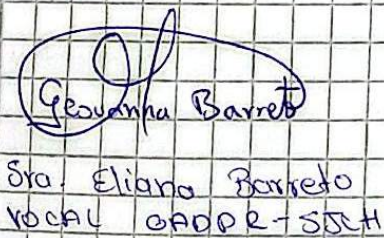 Geovanna Barreto
Sra. Eliana Barreto
VOCAL GADPR-SJCH